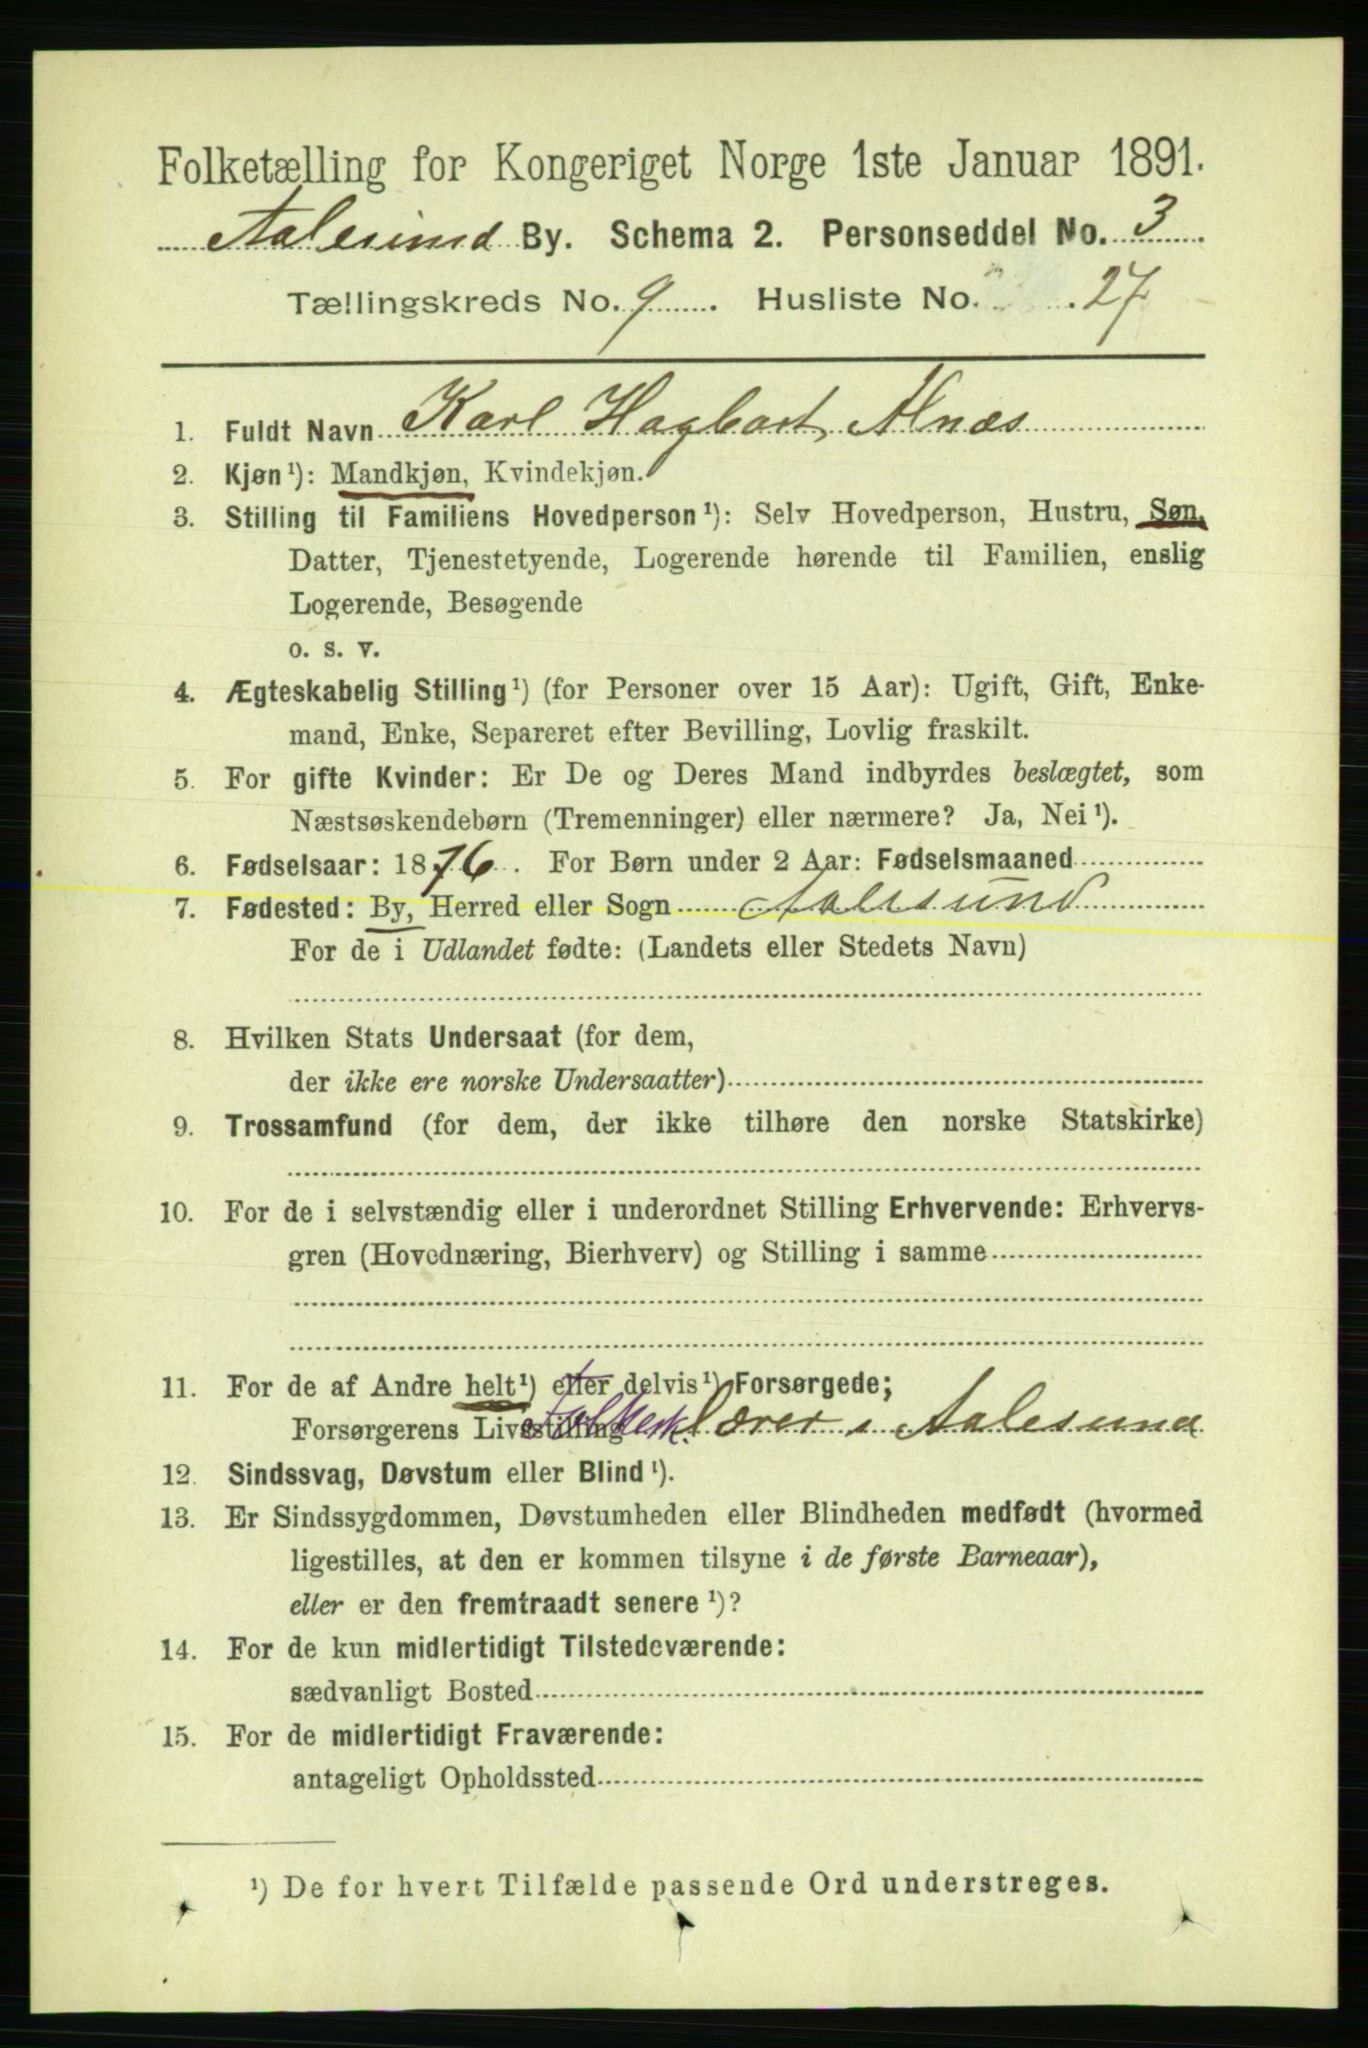 Folketælling for Kongeriget Norge 1ste Januar 1891.
Aalesund By. Schema 2. Personseddel No. 3
Tællingskreds No. 9. Husliste No. 27
1. Fuldt Navn Karl Hagbart Alnæs
2. Kjøn¹): Mandkjøn, Kvindekjøn.
3. Stilling til Familiens Hovedperson¹): Selv Hovedperson, Hustru, Søn,
Datter, Tjenestetyende, Logerende hørende til Familien, enslig
Logerende, Besøgende
o. s. v.
4. Ægteskabelig Stilling¹) (for Personer over 15 Aar): Ugift, Gift, Enke-
mand, Enke, Separeret efter Bevilling, Lovlig fraskilt.
5. For gifte Kvinder: Er De og Deres Mand indbyrdes beslægtet, som
Næstsøskendebørn (Tremenninger) eller nærmere? Ja, Nei¹).
6. Fødselsaar: 1876. For Børn under 2 Aar: Fødselsmaaned
7. Fødested: By, Herred eller Sogn Aalesund
For de i Udlandet fødte: (Landets eller Stedets Navn)
8. Hvilken Stats Undersaat (for dem,
der ikke ere norske Undersaatter)
9. Trossamfund (for dem, der ikke tilhøre den norske Statskirke)
10. For de i selvstændig eller i underordnet Stilling Erhvervende: Erhvervs-
gren (Hovednæring, Bierhverv) og Stilling i samme
11. For de af Andre helt¹) eller delvis¹) Forsørgede;
Forsørgerens Livsstilling Folkesk.lærer i Aalesund
12. Sindssvag, Døvstum eller Blind¹).
13. Er Sindssygdommen, Døvstumheden eller Blindheden medfødt (hvormed
ligestilles, at den er kommen tilsyne i de første Barneaar),
eller er den fremtraadt senere¹)?
14. For de kun midlertidigt Tilstedeværende:
sædvanligt Bosted
15. For de midlertidigt Fraværende:
antageligt Opholdssted
¹) De for hvert Tilfælde passende Ord understreges.